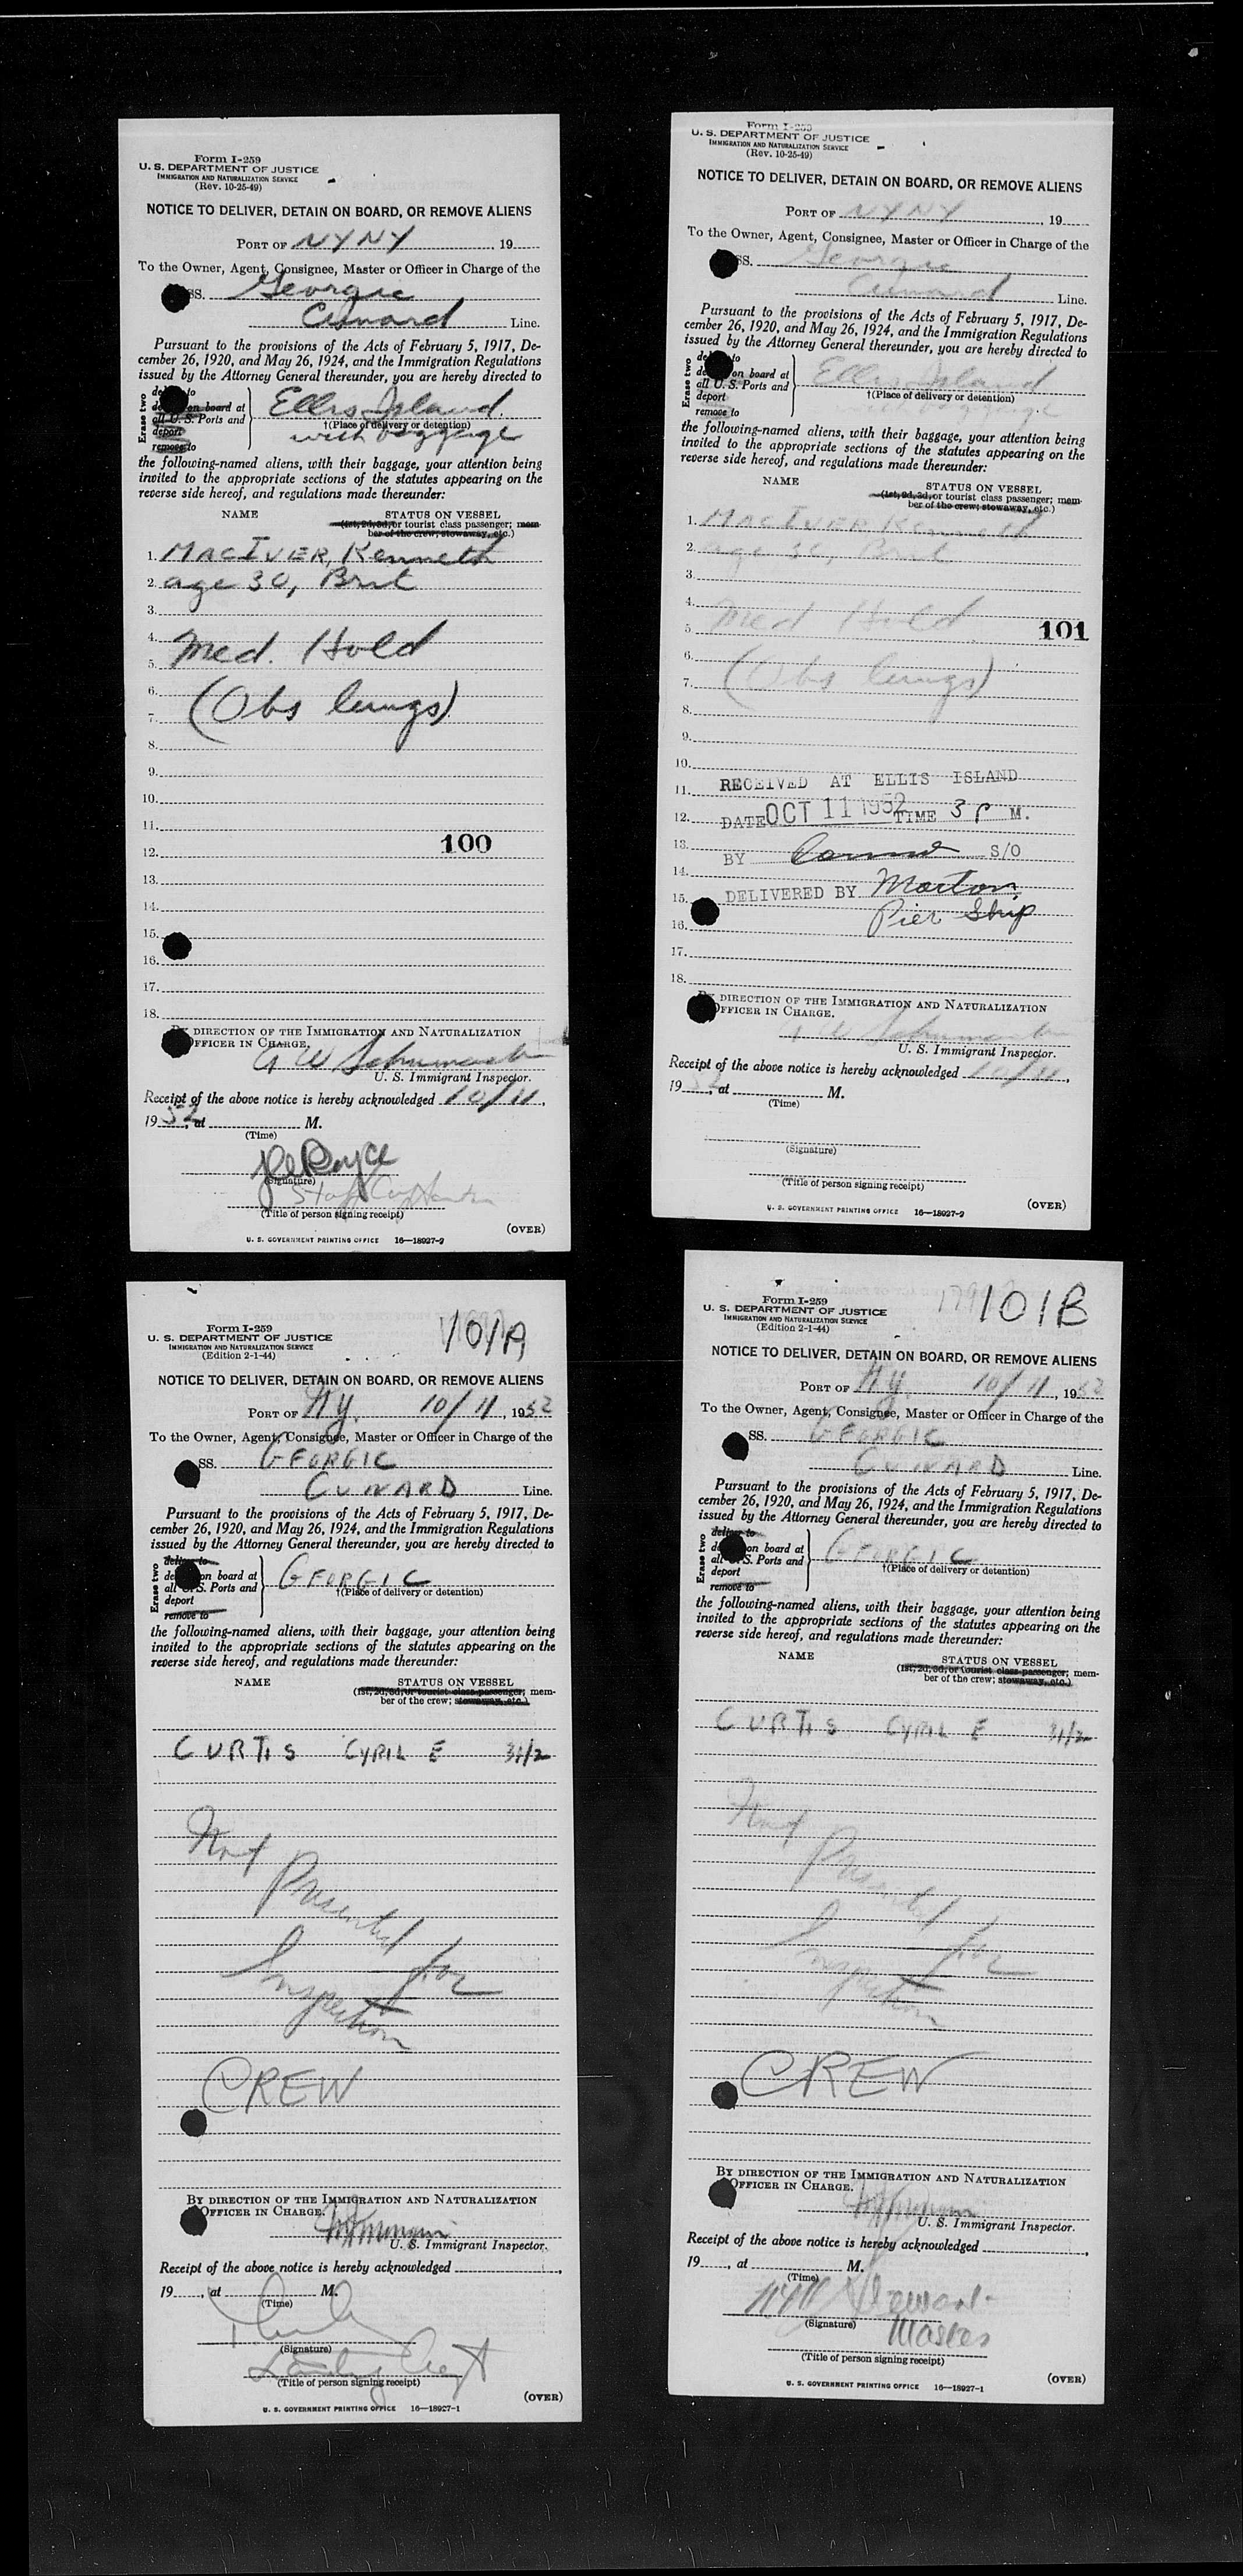 Form I-259
U. S. DEPARTMENT OF JUSTICE
IMMIGRATION AND NATURALIZATION SERVICE
(Rev. 10-25-49)
NOTICE TO DELIVER, DETAIN ON BOARD, OR REMOVE ALIENS
PORT OF NYNY 19
To the Owner, Agent, Consignee, Master or Officer in Charge of the
SS. Georgic
Cunard Line.
Pursuant to the provisions of the Acts of February 5, 1917, De-
cember 26, 1920, and May 26, 1924, and the Immigration Regulations
issued by the Attorney General thereunder, you are hereby directed to
Erase two
to
on board at
all U. S. Ports and
deport
remove to
Ellis Island
†(Place of delivery or detention)
with baggage
the following-named aliens, with their baggage, your attention being
invited to the appropriate sections of the statutes appearing on the
reverse side hereof, and regulations made thereunder:
NAME STATUS ON VESSEL
(1st, 2d, 3d, or tourist class passenger; mem-
ber of the crew; stowaway, etc.)
1. MACIVER, Kenneth
2. age 30, Brit
3.
4. Med. Hold
5.
6. (Obs lungs)
7.
8.
9.
10.
11.
12. 100
13.
14.
15.
16.
17.
18.
BY DIRECTION OF THE IMMIGRATION AND NATURALIZATION
OFFICER IN CHARGE.
U. S. Immigrant Inspector.
Receipt of the above notice is hereby acknowledged 10/11,
1952, at M.
(Time)
(Signature)
(Title of person signing receipt)
(OVER)
U. S. GOVERNMENT PRINTING OFFICE 16—18927-2
Form I-259
U. S. DEPARTMENT OF JUSTICE
IMMIGRATION AND NATURALIZATION SERVICE
(Rev. 10-25-49)
NOTICE TO DELIVER, DETAIN ON BOARD, OR REMOVE ALIENS
PORT OF NYNY, 19
To the Owner, Agent, Consignee, Master or Officer in Charge of the
SS. Georgic
Cunard Line.
Pursuant to the provisions of the Acts of February 5, 1917, De-
cember 26, 1920, and May 26, 1924, and the Immigration Regulations
issued by the Attorney General thereunder, you are hereby directed to
Erase two
to
on board at
all U. S. Ports and
deport
remove to
Ellis Island
†(Place of delivery or detention)
with baggage
the following-named aliens, with their baggage, your attention being
invited to the appropriate sections of the statutes appearing on the
reverse side hereof, and regulations made thereunder:
NAME STATUS ON VESSEL
(1st, 2d, 3d, or tourist class passenger; mem-
ber of the crew; stowaway, etc.)
1. MACIVER Kenneth
2. age 30, Brit
3.
4. Med Hold
5. 101
6. (Obs lungs)
7.
8.
9.
10.
11. RECEIVED AT ELLIS ISLAND
12. DATE OCT 11 1952 TIME 3 P M.
13. BY S/O
14.
15. DELIVERED BY Morton
16. Pier Ship
17.
18.
BY DIRECTION OF THE IMMIGRATION AND NATURALIZATION
OFFICER IN CHARGE.
U. S. Immigrant Inspector.
Receipt of the above notice is hereby acknowledged 10/11,
1952, at M.
(Time)
(Signature)
(Title of person signing receipt)
(OVER)
U. S. GOVERNMENT PRINTING OFFICE 16—18927-2
101A
Form I-259
U. S. DEPARTMENT OF JUSTICE
IMMIGRATION AND NATURALIZATION SERVICE
(Edition 2-1-44)
NOTICE TO DELIVER, DETAIN ON BOARD, OR REMOVE ALIENS
PORT OF NY. 10/11, 1952
To the Owner, Agent, Consignee, Master or Officer in Charge of the
SS. GEORGIC
CUNARD Line.
Pursuant to the provisions of the Acts of February 5, 1917, De-
cember 26, 1920, and May 26, 1924, and the Immigration Regulations
issued by the Attorney General thereunder, you are hereby directed to
Erase two
deliver to
on board at
all U. S. Ports and
deport
remove to
GEORGIC
†(Place of delivery or detention)
the following-named aliens, with their baggage, your attention being
invited to the appropriate sections of the statutes appearing on the
reverse side hereof, and regulations made thereunder:
NAME STATUS ON VESSEL
(1st, 2d, 3d, or tourist class passenger; mem-
ber of the crew; stowaway, etc.)
CURTIS CYRIL E 31/2
Not
Presented
for
Inspection
CREW
BY DIRECTION OF THE IMMIGRATION AND NATURALIZATION
OFFICER IN CHARGE.
U. S. Immigrant Inspector.
Receipt of the above notice is hereby acknowledged ,
19 , at M.
(Time)
(Signature)
Landing Agt
(Title of person signing receipt)
(OVER)
U. S. GOVERNMENT PRINTING OFFICE 16—18927-1
101B
Form I-259
U. S. DEPARTMENT OF JUSTICE
IMMIGRATION AND NATURALIZATION SERVICE
(Edition 2-1-44)
NOTICE TO DELIVER, DETAIN ON BOARD, OR REMOVE ALIENS
PORT OF NY. 10/11, 1952
To the Owner, Agent, Consignee, Master or Officer in Charge of the
SS. GEORGIC
CUNARD Line.
Pursuant to the provisions of the Acts of February 5, 1917, De-
cember 26, 1920, and May 26, 1924, and the Immigration Regulations
issued by the Attorney General thereunder, you are hereby directed to
Erase two
deliver to
on board at
all U. S. Ports and
deport
remove to
GEORGIC
†(Place of delivery or detention)
the following-named aliens, with their baggage, your attention being
invited to the appropriate sections of the statutes appearing on the
reverse side hereof, and regulations made thereunder:
NAME STATUS ON VESSEL
(1st, 2d, 3d, or tourist class passenger; mem-
ber of the crew; stowaway, etc.)
CURTIS CYRIL E 31/2
Not
Presented
for
Inspection
CREW
BY DIRECTION OF THE IMMIGRATION AND NATURALIZATION
OFFICER IN CHARGE.
U. S. Immigrant Inspector.
Receipt of the above notice is hereby acknowledged ,
19 , at M.
(Time)
(Signature)
Master
(Title of person signing receipt)
(OVER)
U. S. GOVERNMENT PRINTING OFFICE 16—18927-1